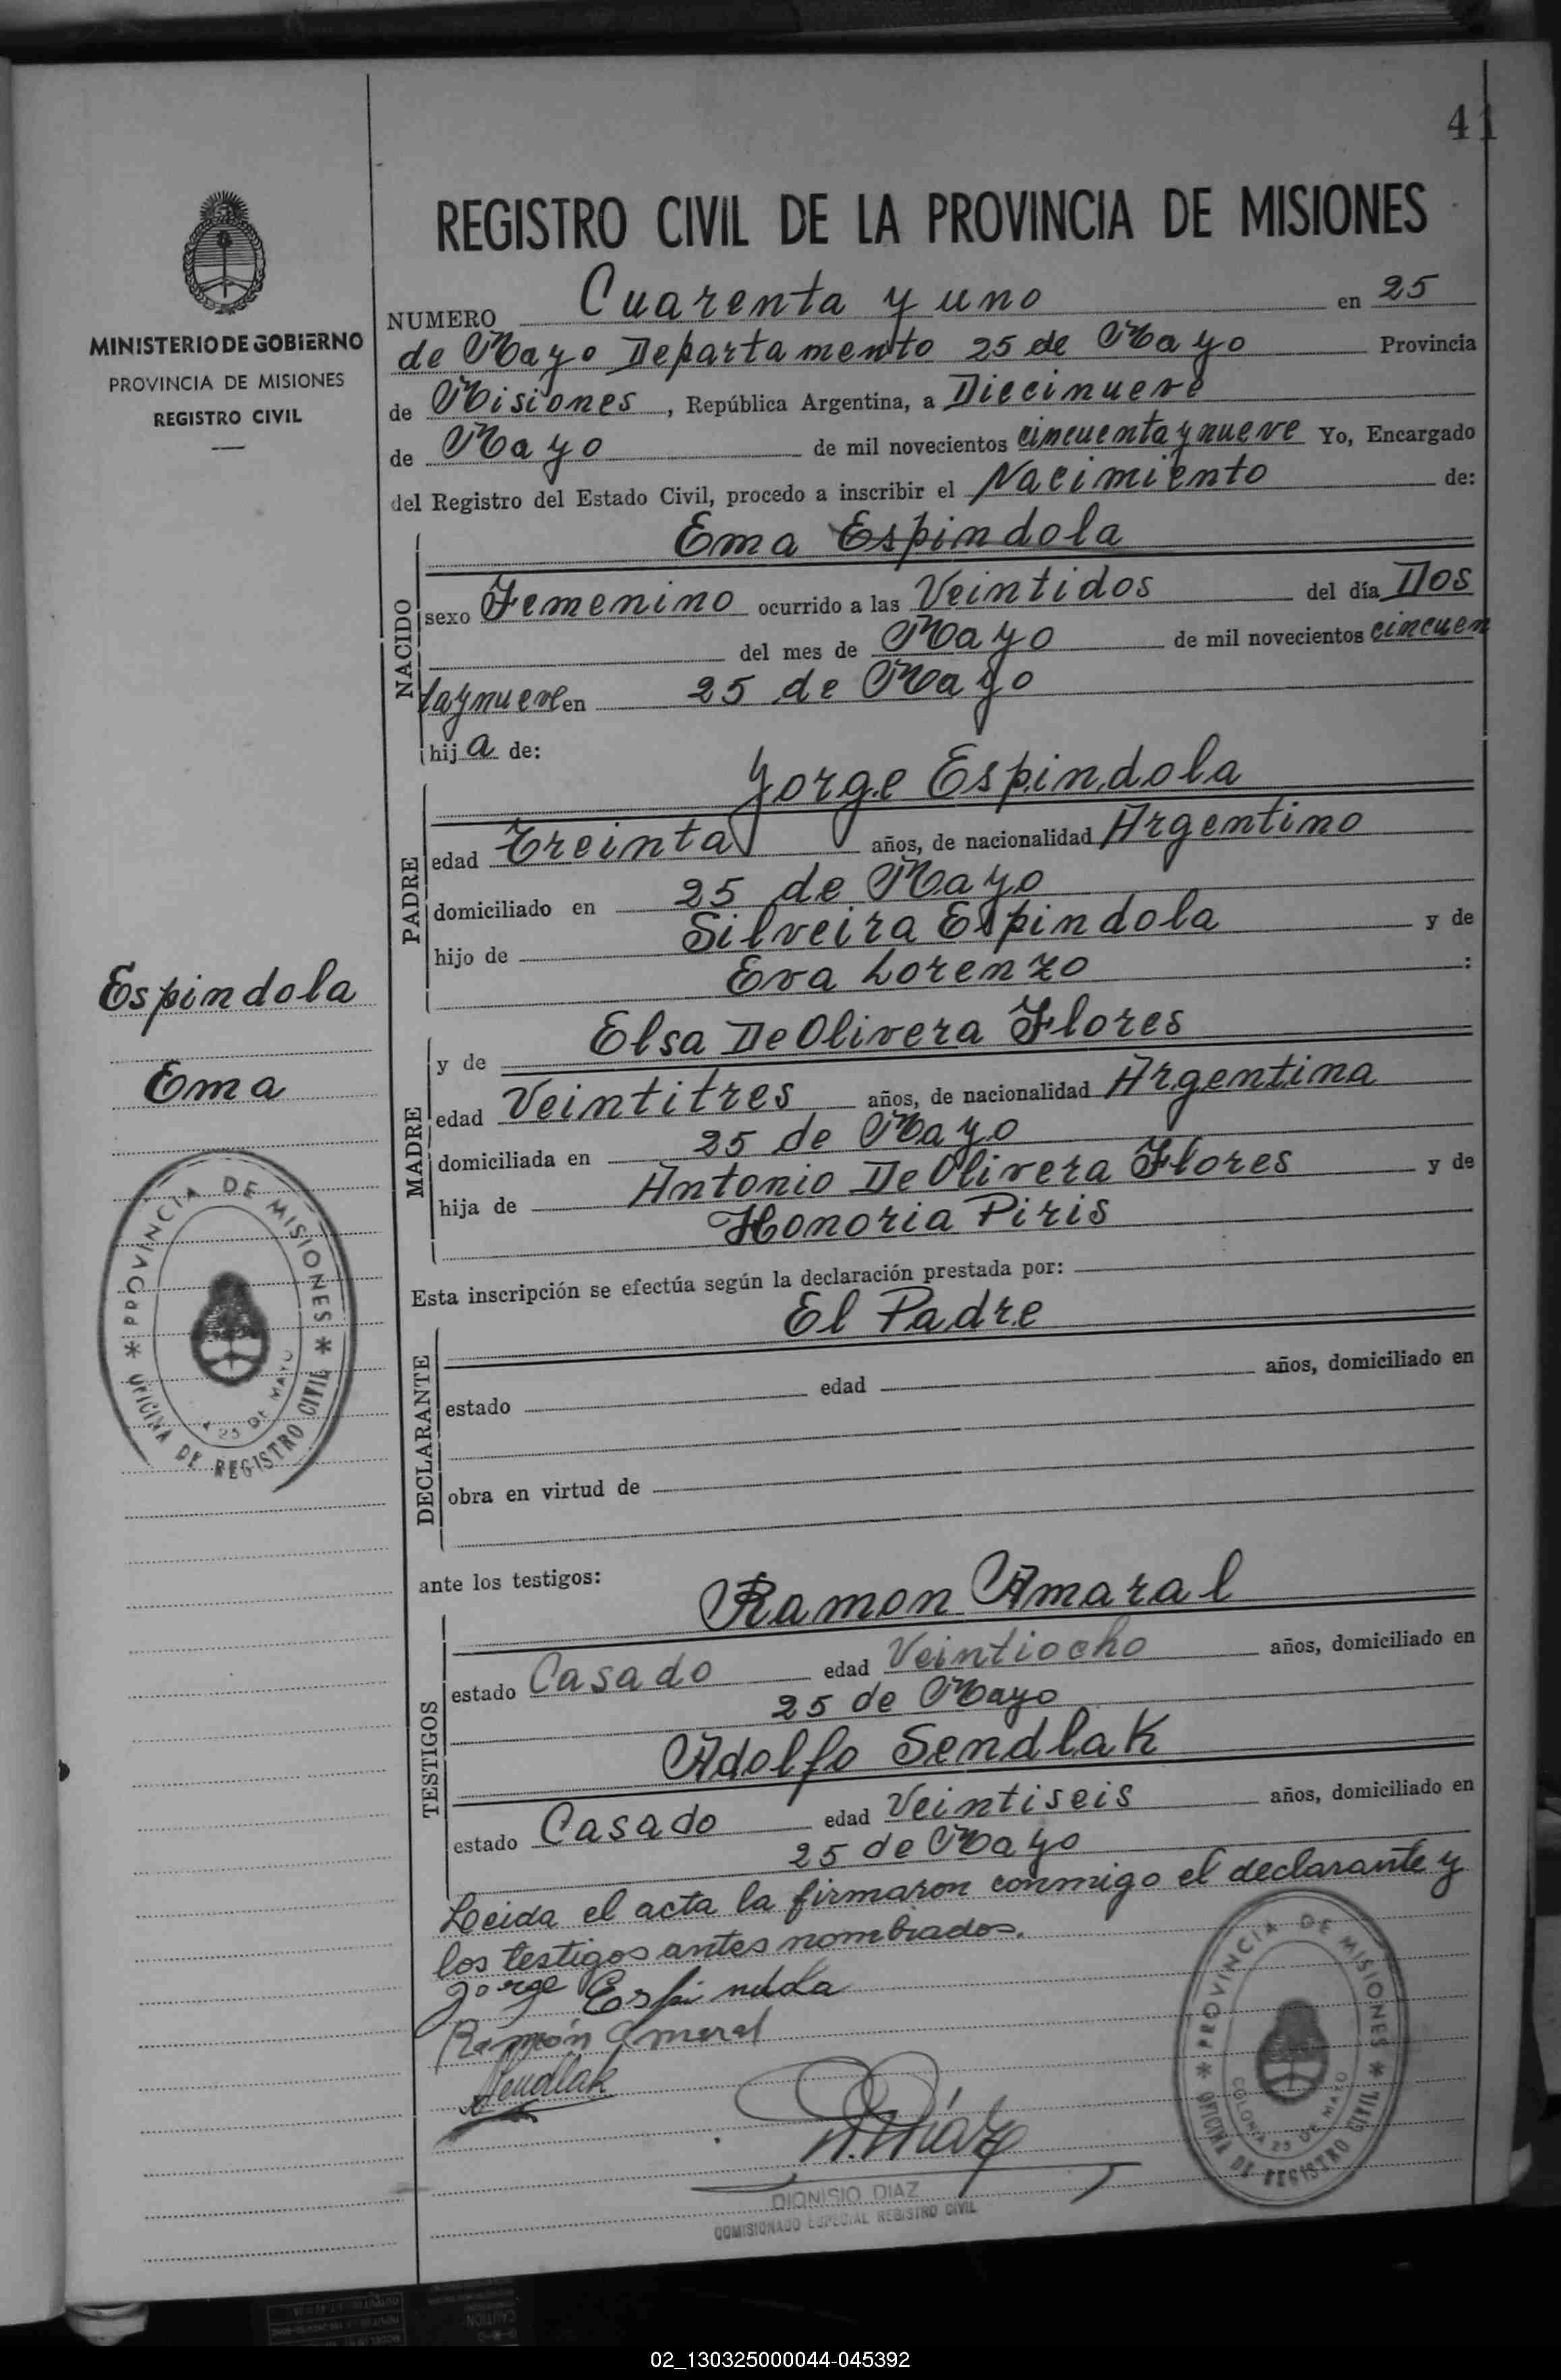 41
REGISTRO CIVIL DE LA PROVINCIA DE MISIONES
MINISTERIO DE GOBIERNO
PROVINCIA DE MISIONES
REGISTRO CIVIL
NUMERO Cuarenta y uno en 25
de Mayo Departamento 25 de Mayo Provincia
de Misiones, República Argentina, a Diecinueve
de Mayo de mil novecientos cincuenta y nueve Yo, Encargado
del Registro del Estado Civil, procedo a inscribir el Nacimiento de:
NACIDO
Ema Espindola
sexo Femenino ocurrido a las Veintidos del día Dos
del mes de Mayo de mil novecientos cincuen
ta y nueve en 25 de Mayo
hija de:
PADRE
Jorge Espindola
edad Treinta años, de nacionalidad Argentino
domiciliado en 25 de Mayo
hijo de Silveira Espindola y de
Eva Lorenzo :
Espindola
Ema
MADRE
y de Elsa De Olivera Flores
edad Veintitres años, de nacionalidad Argentina
domiciliada en 25 de Mayo
hija de Antonio De Olivera Flores y de
Honoria Piris
PROVINCIA DE MISIONES
* OFICINA DE REGISTRO CIVIL *
25 DE MAYO
Esta inscripción se efectúa según la declaración prestada por:
DECLARANTE
El Padre
estado edad años, domiciliado en
obra en virtud de
ante los testigos:
TESTIGOS
Ramon Amaral
estado Casado edad Veintiocho años, domiciliado en
25 de Mayo
Adolfo Sendlak
estado Casado edad Veintiseis años, domiciliado en
25 de Mayo
Leida el acta la firmaron conmigo el declarante y
los testigos antes nombrados.
Jorge Espindola
Ramón Amaral
Sendlak
D. Díaz
DIONISIO DIAZ
COMISIONADO ESPECIAL REGISTRO CIVIL
PROVINCIA DE MISIONES
* OFICINA DE REGISTRO CIVIL *
COLONIA 25 DE MAYO
02_130325000044-045392